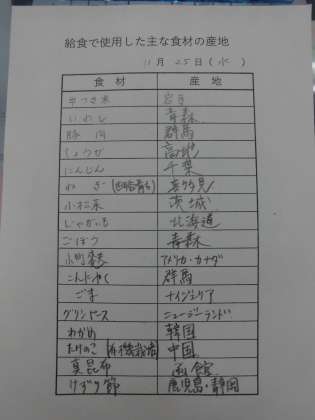 給食で使用した主な食材の産地
11月25日(水)
食材 産地
岩手
いわし 青森
豚肉 群馬
しょうが 高知
にんじん 千葉
ねぎ
小松菜 茨城
じゃがいも 北海道
ごぼう 青森
アメリカ・カナダ
こんにゃく 群馬
ごま ナイジェリア
グリンピース ニュージーランド
わかめ 韓国
たけのこ(有機栽培) 中国
真昆布 函館
けずり節 鹿児島・静岡